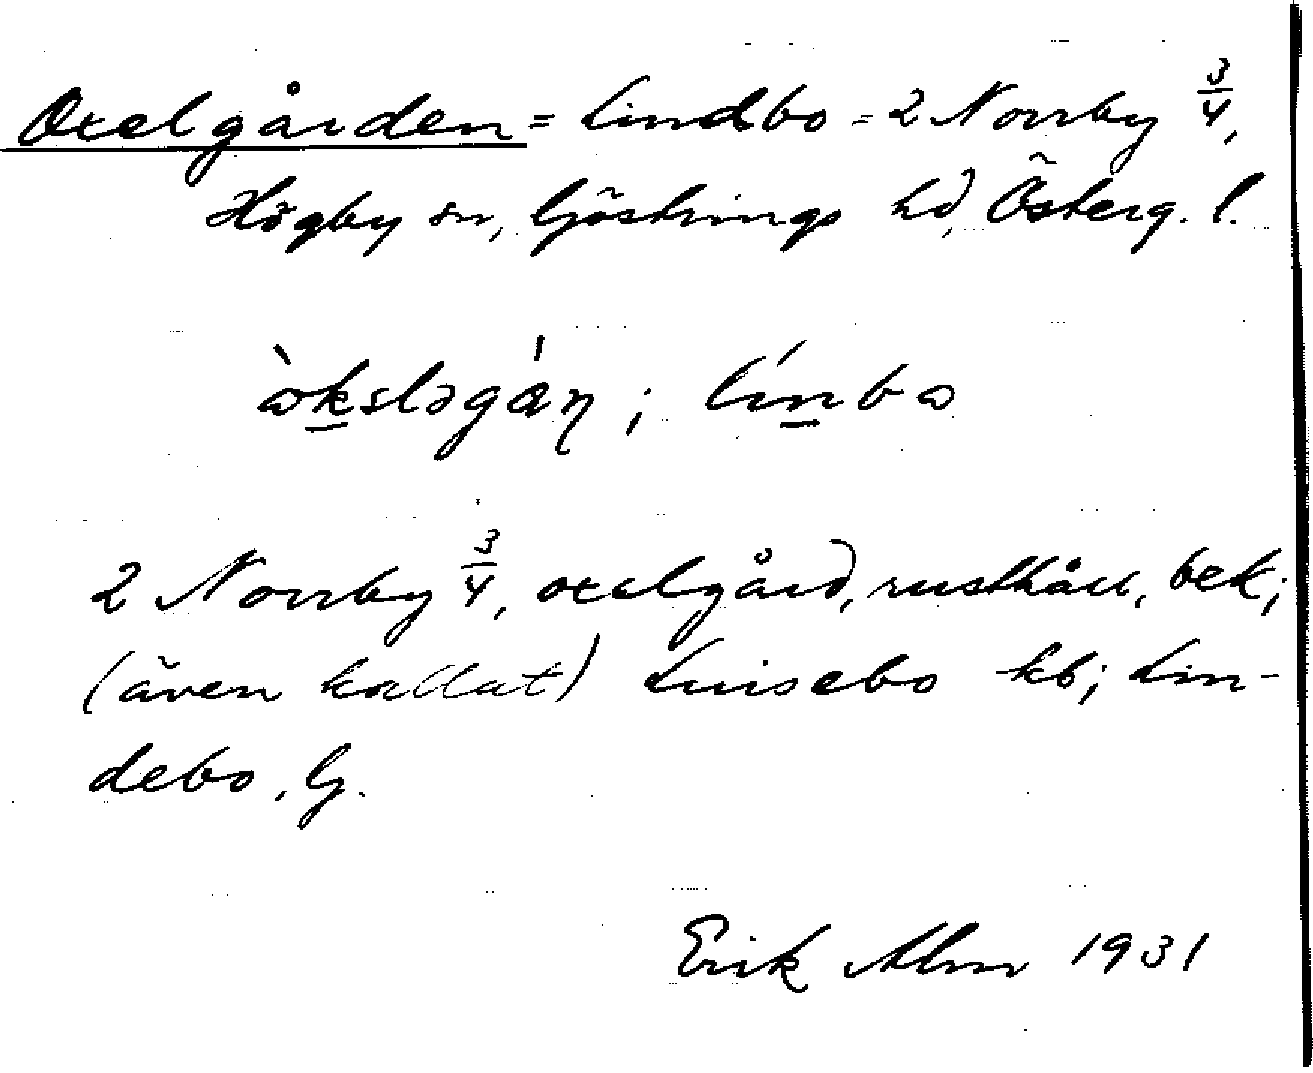 Oxelgården = Lindbo = 2 Norrby 3/4,
Högby sn, Göstrings hd, Österg. l.
ɷ̀kslǝgáṇ; línbɷ
2 Norrby 3/4, oxelgård, rusthåll, bek;
(även kallat) Luisebo kb; Lin-
debo, G.
Erik Alm 1931